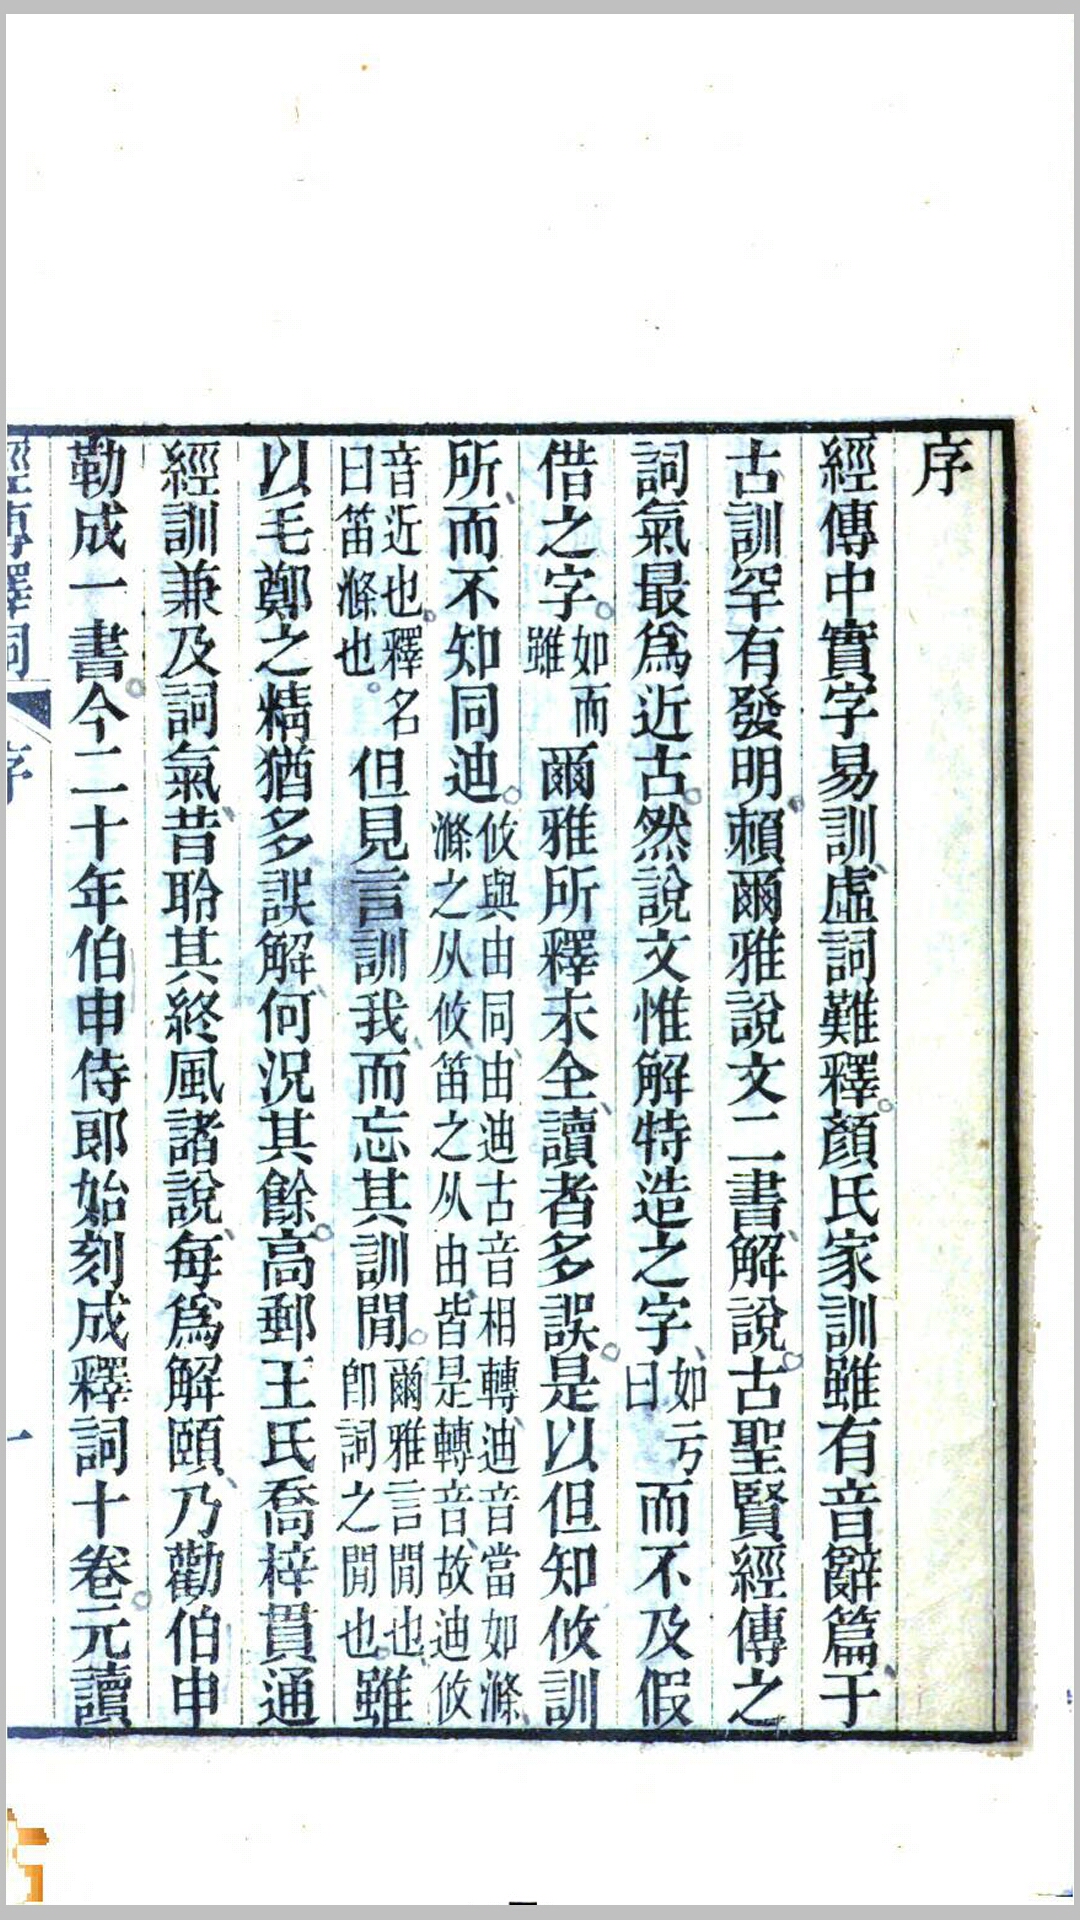 序
經傳中實字易訓虛詞難釋顏氏家訓雖有音辭篇于
古訓罕有發明賴爾雅說文二書解說古聖賢經傳之
詞氣最爲近古然說文惟解特造之字如亏曰而不及假
借之字如而雖爾雅所釋未全讀者多誤是以但知攸訓
所而不知同迪攸與由同由迪古音相轉迪音當如滌滌之从攸笛之从由皆是轉音故迪攸
音近也釋名曰笛滌也但見言訓我而忘其訓閒爾雅言閒也卽詞之閒也雖
以毛鄭之精猶多誤解何況其餘高郵王氏喬梓貫通
經訓兼及詞氣昔聆其終風諸說每爲解頤乃勸伯申
勒成一書今二十年伯申侍郎始刻成釋詞十卷元讀
經傳釋詞
序
一